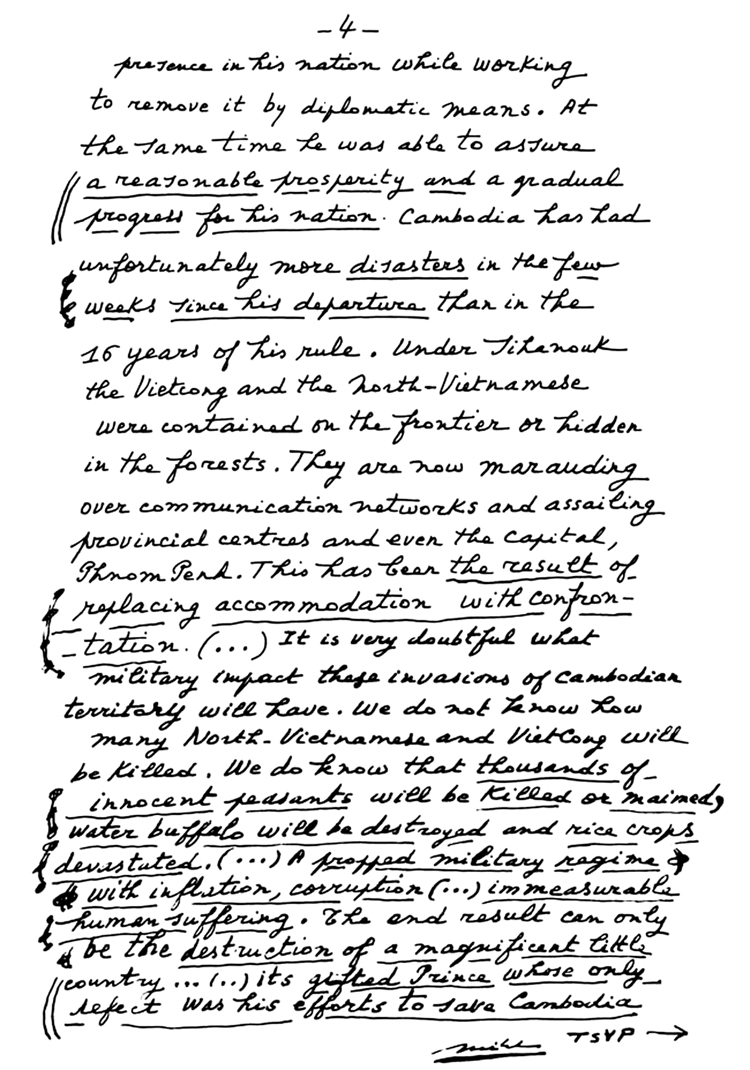 - 4 -
presence in his nation while working
to remove it by diplomatic means. At
the same time he was able to assure
a reasonable prosperity and a gradual
progress for his nation. Cambodia has had
unfortunately more disasters in the few
weeks since his departure than in the
16 years of his rule. Under Sihanouk
the Vietcong and the North-Vietnamese
were contained on the frontier or hidden
in the forests. They are now marauding
over communication networks and assailing
provincial centres and even the capital,
Phnom Penh. This has been the result of
replacing accommodation with confron-
-tation. (...) It is very doubtful what
military impact these invasions of Cambodian
territory will have. We do not know how
many North-Vietnamese and VietCong will
be killed. We do know that thousands of
innocent peasants will be killed or maimed,
water buffalo will be destroyed and rice crops
devastated. (...) A propped military regime
with inflation, corruption (...) immeasurable
human suffering. The end result can only
be the destruction of a magnificent little
country ... (..) its gifted Prince whose only
defect was his efforts to save Cambodia
TSVP →